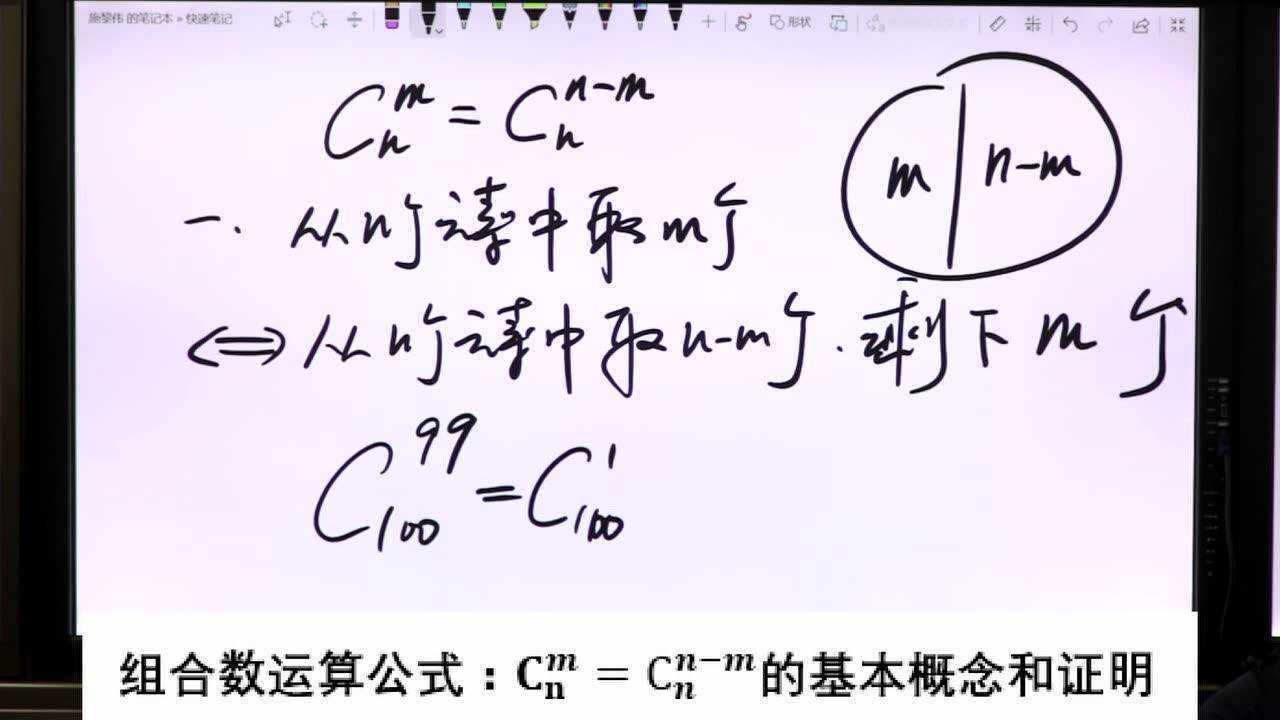 施黎伟 的笔记本 » 快速笔记
形状
C_n^m = C_n^{n-m}
m | n-m
一. 从n个元素中取m个
⟺ 从n个元素中取n-m个. 剩下m个
C_{100}^{99} = C_{100}^{1}
组合数运算公式：C_n^m = C_n^{n-m}的基本概念和证明